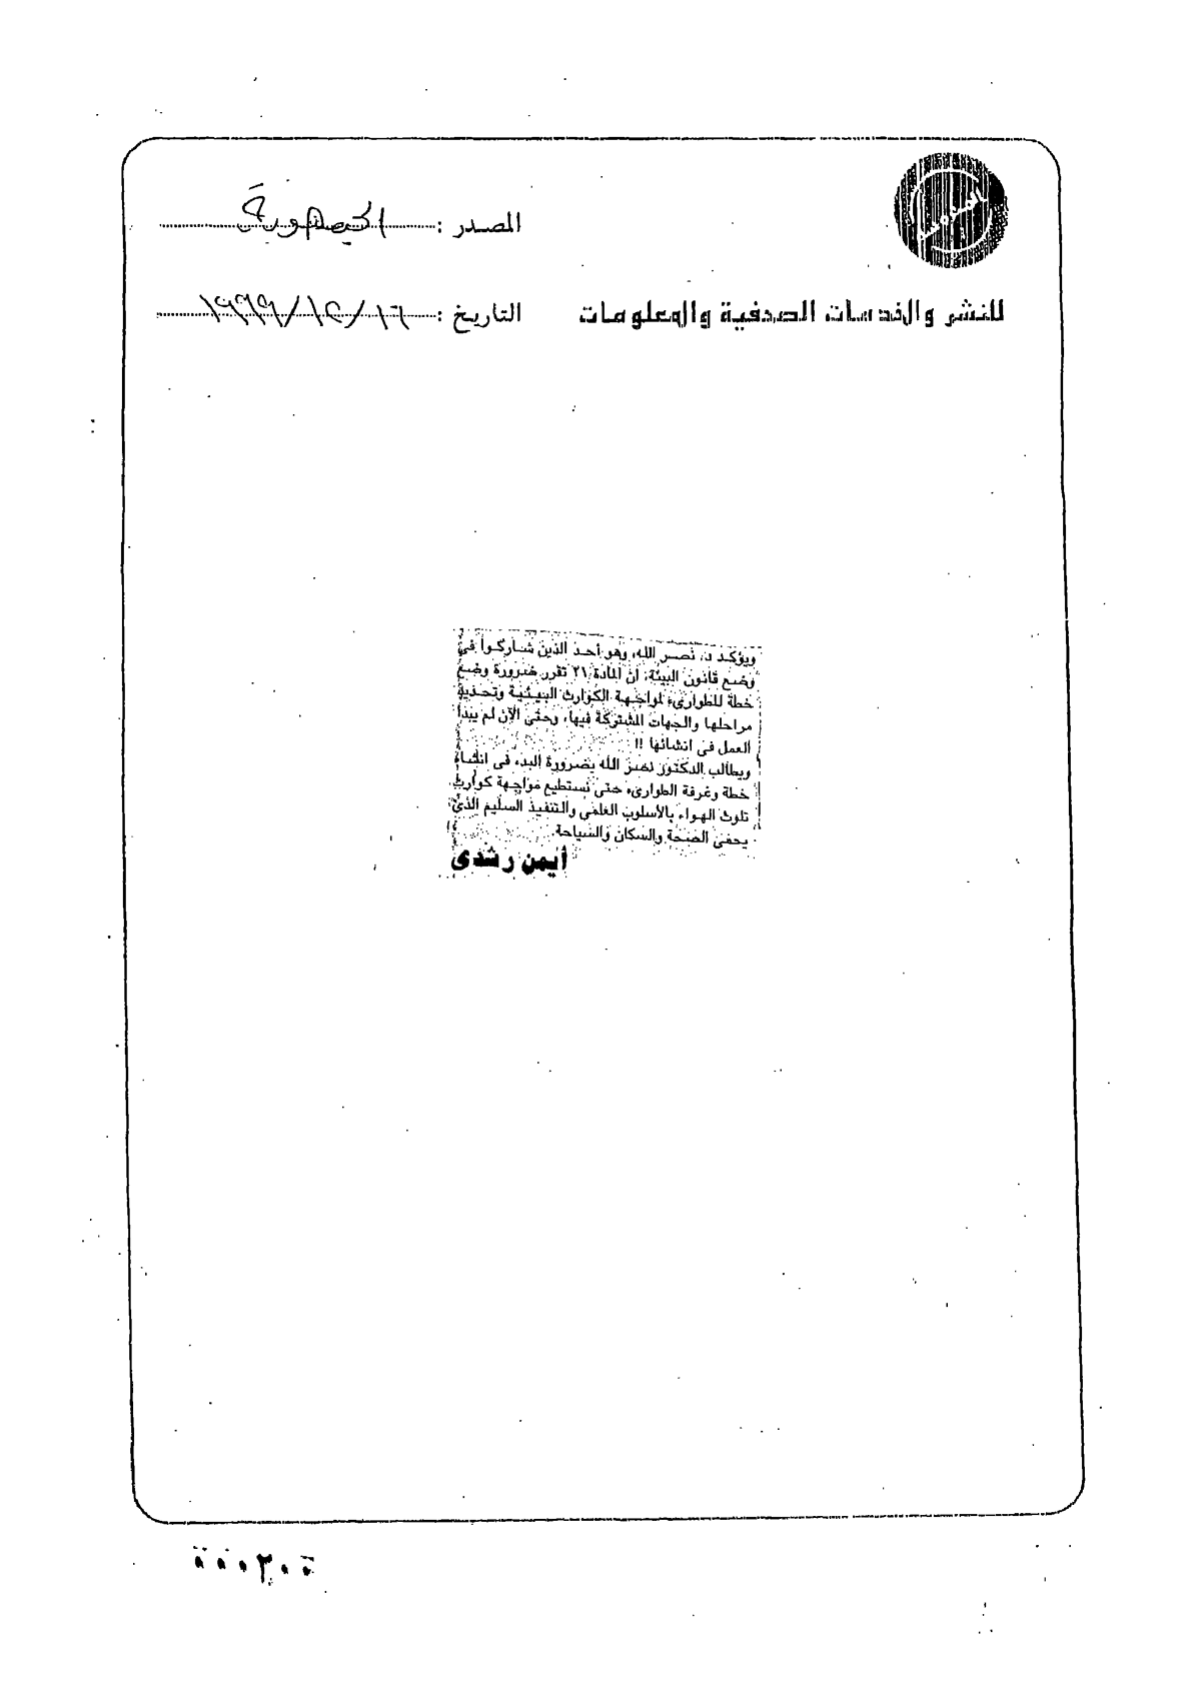 المصدر : الجمهورية
للنشر والخدمات الصحفية والمعلومات
التاريخ : ١٩٩٩/١٢/١٦
ويؤكد د. نصر الله، وهو أحد الذين شاركوا فى
وضع قانون البيئة: أن المادة ٢١ تقرر ضرورة وضع
خطة للطوارىء لمواجهة الكوارث البيئية وتحديد
مراحلها والجهات المشتركة فيها، وحتى الآن لم يبدأ
العمل فى انشائها !!
ويطالب الدكتور نصر الله بضرورة البدء فى انشاء
خطة وغرفة الطوارىء حتى نستطيع مواجهة كوارث
تلوث الهواء بالأسلوب العلمى والتنفيذ السليم الذى
يحمى الصحة والسكان والسياحة.
أيمن رشدى